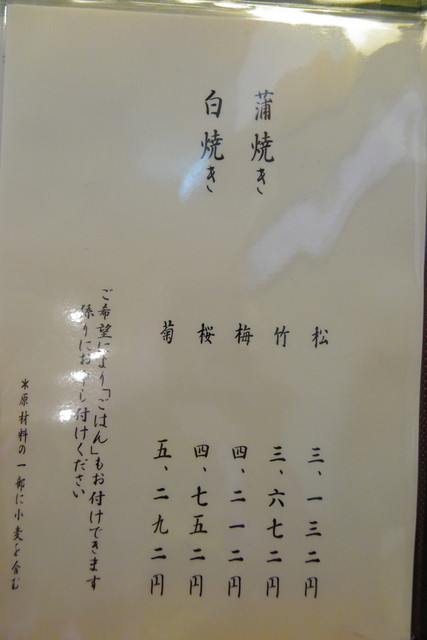 蒲焼き
白焼き
松 三、一三二円
竹 三、六七二円
梅 四、二一二円
桜 四、七五二円
菊 五、二九二円
ご希望により「ごはん」もお付けできます
係りにお申し付けください
※原材料の一部に小麦を含む